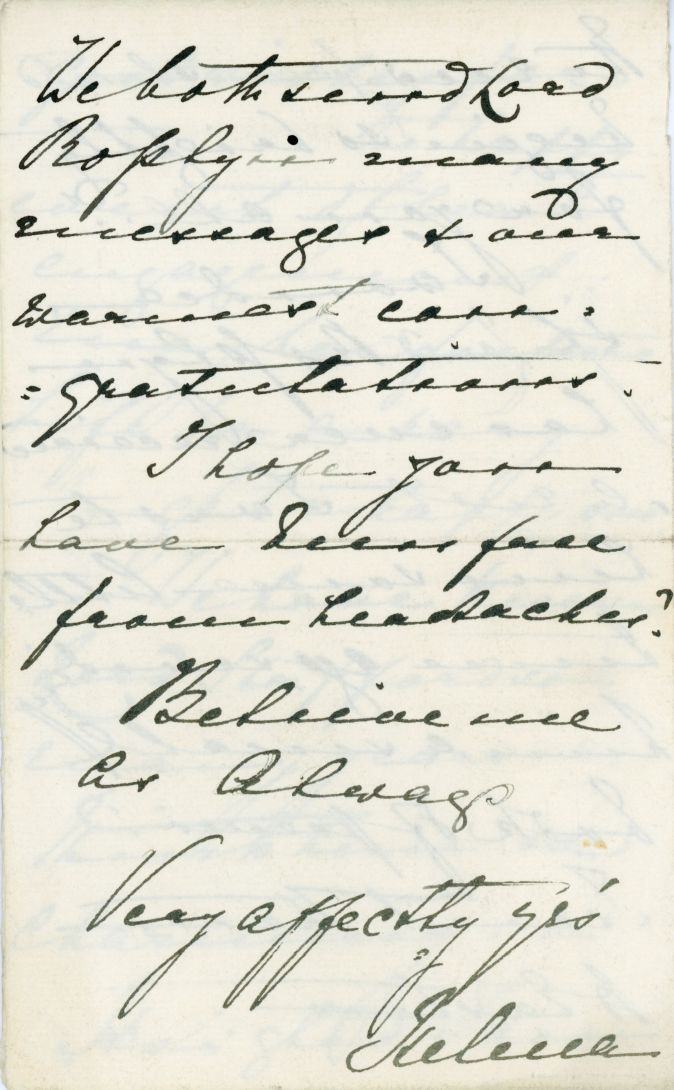 We both send Lord
Rosslyn many
messages & our
warmest con=
=gratulations.
I hope you
have been free
from headaches?
Believe me
as always
Very affectly yrs
Helena